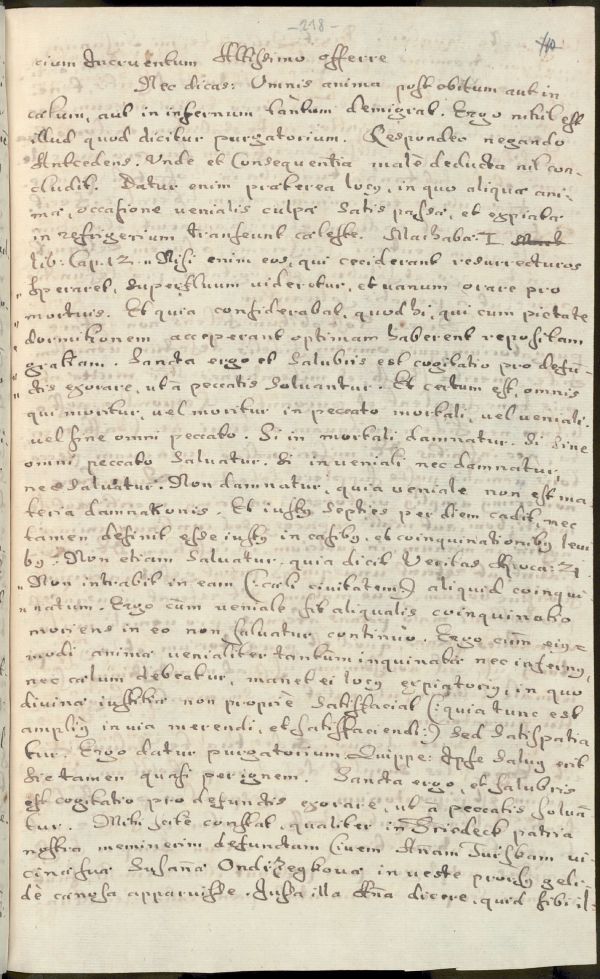 -218-
cium Incruentum Altissimo offerre
Nec dicas: Omnis anima post obitum aut in
cælum, aut in infernum tantum demigrat. Ergo nihil est
illud quod dicitur purgatorium. Respondeo negando
Antecedens. Unde et Consequentia male deducta nil con-
cludit. Datur enim præterea locus, in quo aliquæ ani-
mæ, occasione venialis culpæ satis passæ, et expiatæ
in refrigerium transeunt cæleste. Machabæ: I
lib: Cap. 12. „Nisi enim eos, qui ceciderant resurrecturos
„speraret, superfluum videretur, et vanum orare pro
„mortuis. Et quia considerabat, quod hi, qui cum pietate
„dormitionem acceperant optimam haberent repositam
„gratiam. Sancta ergo et salubris est cogitatio pro defun-
„ctis exorare, ut a peccatis solvantur. Et certum est, omnis
qui moritur, vel moritur in peccato mortali, vel veniali,
vel sine omni peccato. Si in mortali damnatur. Si sine
omni peccato salvatur. Si in veniali nec damnatur,
nec salvatur. Non damnatur, quia veniale non est ma-
teria damnationis. Et iustus septies per diem cadit, nec
tamen desinit esse iustus in casibus, et coinquinationibus levi-
bus. Non etiam salvatur, quia dicit Veritas Apoca: 21.
„Non intrabit in eam (: cæli civitatem :) aliquid coinqui-
„natum. Ergo cum veniale sit aliqualis coinquinatio
moriens in eo non salvatur continuo. Ergo cum eius-
modi animæ venialiter tantum inquinatæ nec infernus,
nec cælum debeatur, manet ei locus expiatorius, in quo
divinæ iustitiæ non proprie satisfaciat (: quia tunc est
amplius in via merendi, et satisfaciendi :) sed satispatia
tur. Ergo datur purgatorium. Quippe: Ipse salvus erit
sic tamen quasi per ignem. Sancta ergo, et salubris
est cogitatio pro defunctis exorare, ut a peccatis solvan
tur. Mihi certe constat, qualiter in patria
nostra meminerim defunctam Civem Annam vi-
cinæ suæ Susannæ in veste prorsus geli-
de canosa apparuisse. Iussa illa Ana dicere, quid sibi il-